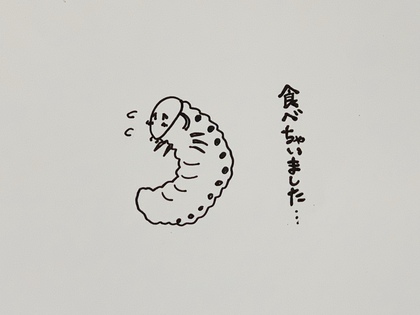 食べちゃいました…